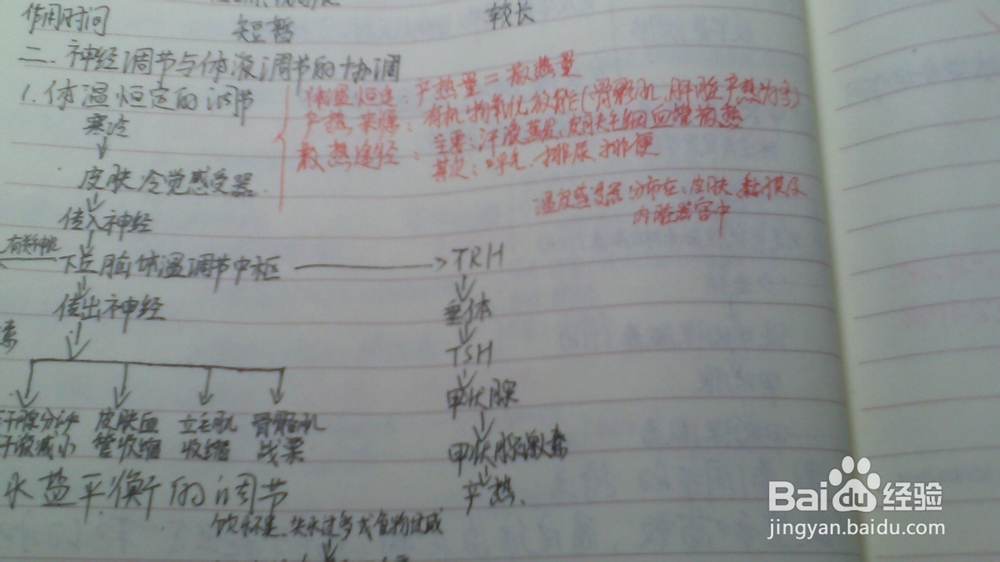 作用时间 短暂 较长
二.神经调节与体液调节的协调
1.体温恒定的调节
体温恒定:产热量=散热量
产热来源:有机物氧化放能(骨骼肌、肝脏产热为主)
散热途径:主要:汗液蒸发、皮肤毛细血管散热
其次:呼气、排尿、排便
温度感受器分布在皮肤、黏膜及
内脏器官中
寒冷
皮肤冷觉感受器
传入神经
下丘脑体温调节中枢
TRH
传出神经
垂体
素
TSH
甲状腺
汗腺分泌 皮肤血 立毛肌 骨骼肌
汗液减小 管收缩 收缩 战栗
甲状腺激素
产热.
水盐平衡的调节
饮水不足、失水过多或食物过咸
Baidu经验
jingyan.baidu.com